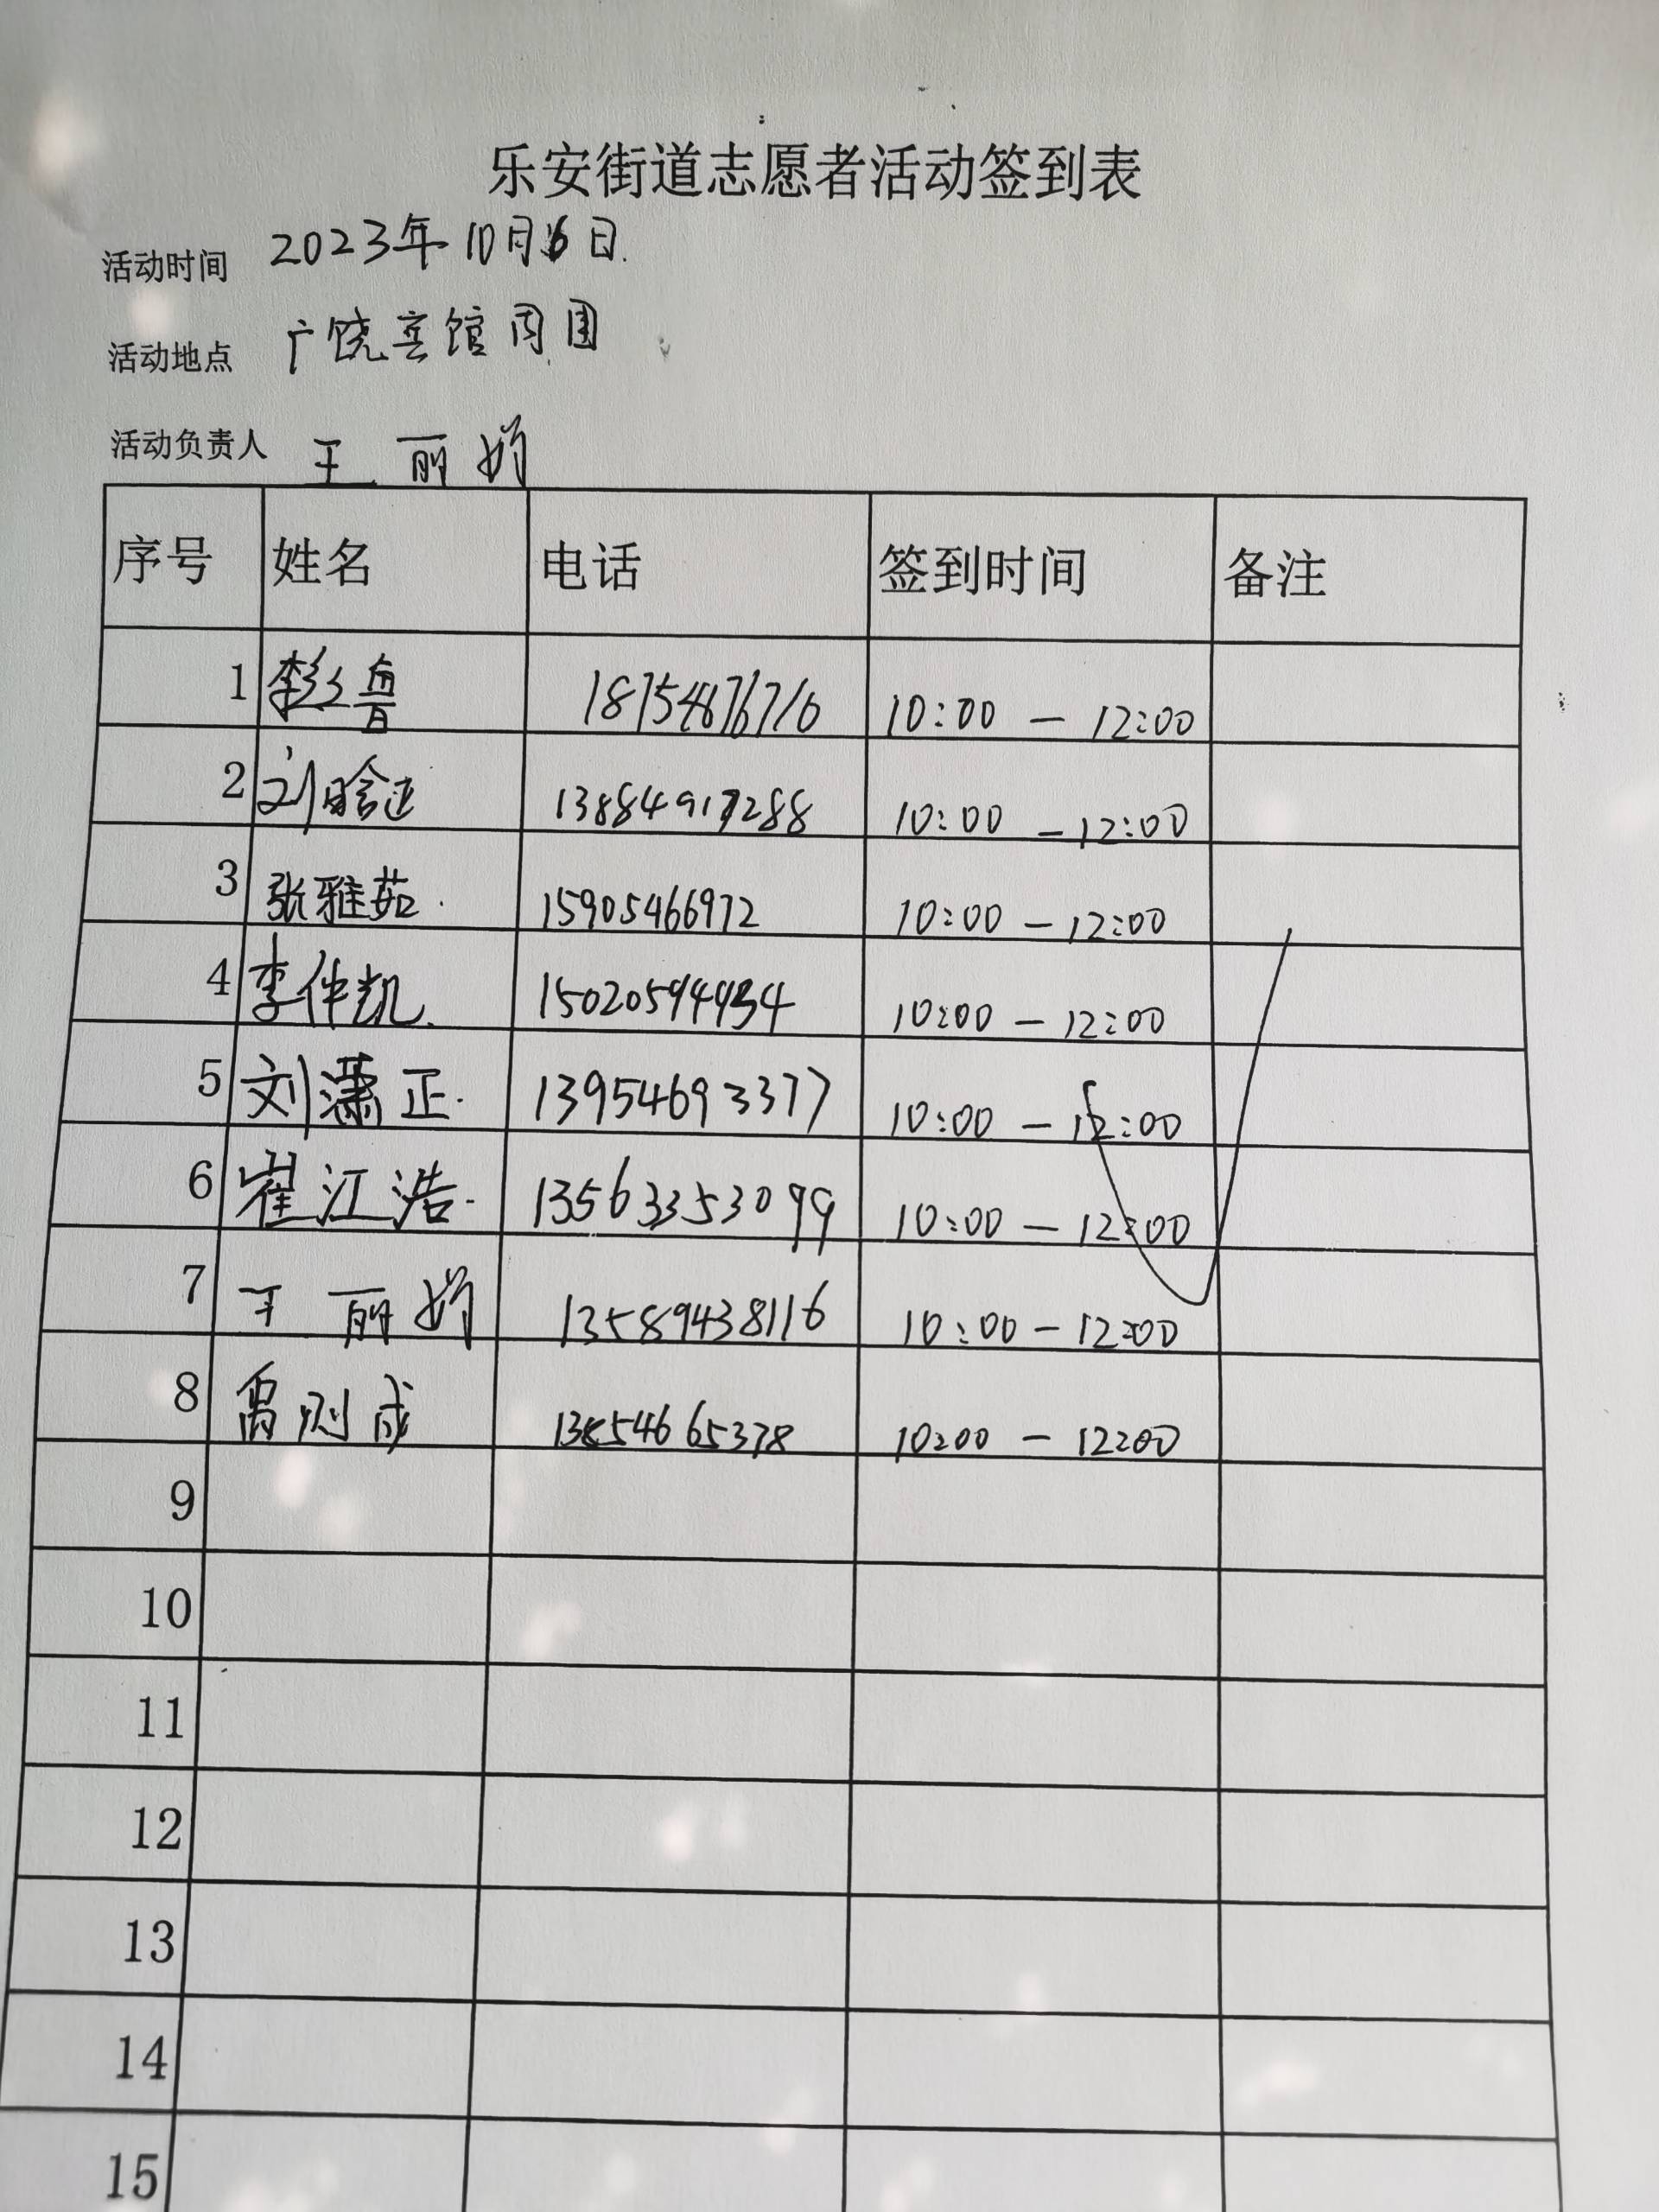 乐安街道志愿者活动签到表
活动时间 2023年10月6日.
活动地点 广饶宾馆周围
活动负责人 王丽娇
序号 姓名 电话 签到时间 备注
1 10:00 — 12:00
2 刘晗正 13884917288 10:00 — 12:00
3 张雅茹. 15905466972 10:00 — 12:00
4 李仲凯. 15020594934 10:00 — 12:00
5 刘潇正. 13954693377 10:00 — 12:00
6 崔江浩. 13563353099 10:00 — 12:00
7 王丽娇 13589438116 10:00 — 12:00
8 10:00 — 12:00
9
10
11
12
13
14
15